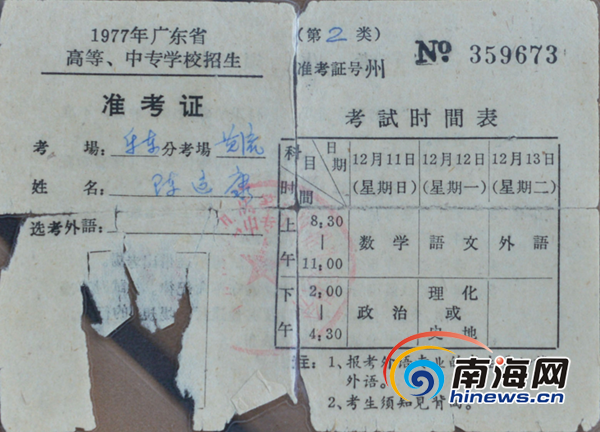 1977年广东省
高等、中专学校招生
准考证
考場：乐东分考場黄流
姓名：陈运
选考外語：
（第2类）
准考証号州 № 359673
考試时間表
科目 日期 时間 12月11日（星期日） 12月12日（星期一） 12月13日（星期二）
上午 8,30—11,00 数学 語文 外語
下午 2,00—4,30 政治 理化或史地
注：1、报考外语专业的
外语。
2、考生须知見背
南海网
hinews.cn